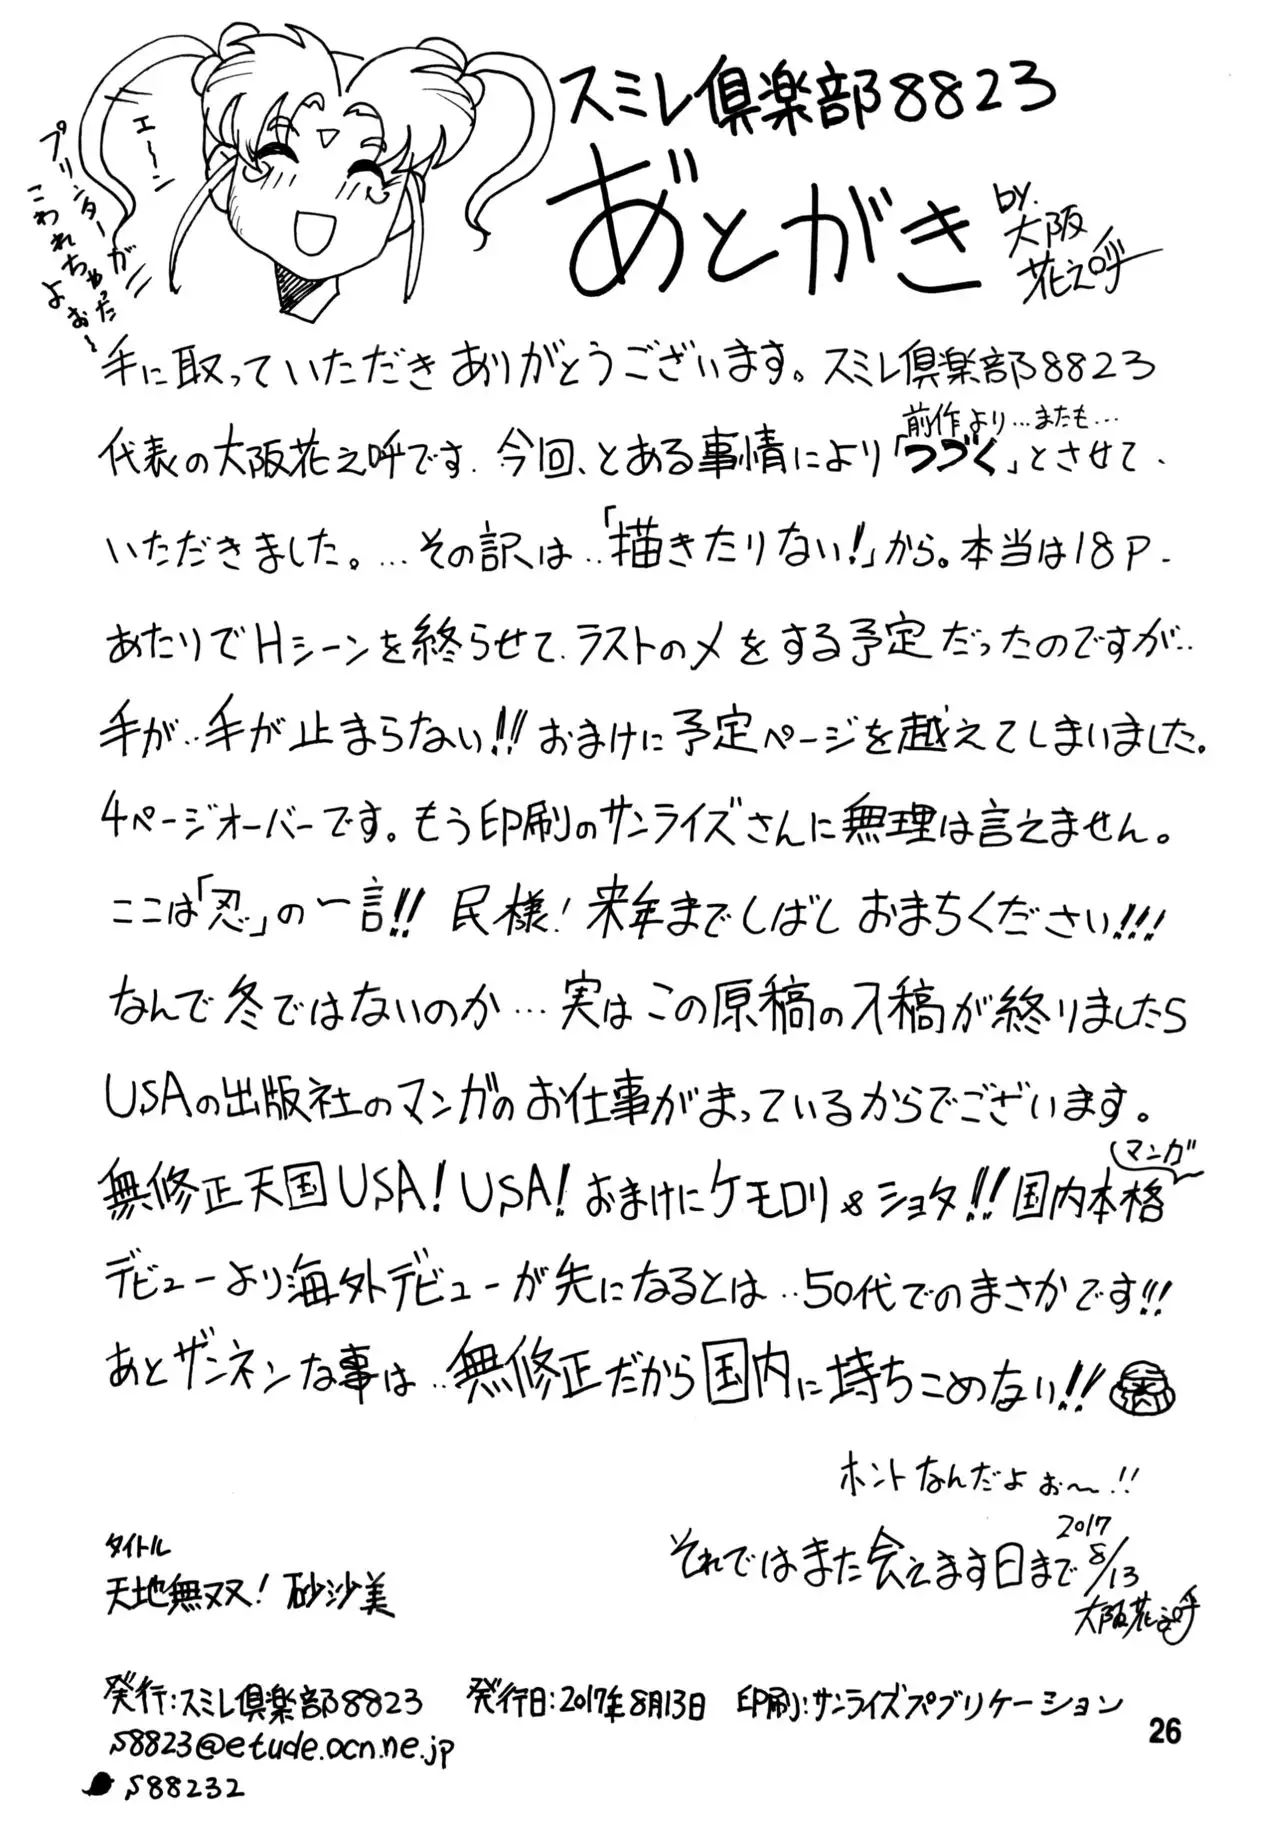 スミレ倶楽部8823
あとがき
by.大阪花之呼
エ〜ン
プリンターが
こわれちゃった
よぉ〜
手に取っていただきありがとうございます。スミレ倶楽部8823
代表の大阪花之呼です。今回、とある事情により「つづく」とさせて
前作より…またも…
いただきました。…その訳は‥「描きたりない!」から。本当は18P
あたりでHシーンを終らせて、ラストの〆をする予定だったのですが‥
手が‥手が止まらない!!おまけに予定ページを越えてしまいました。
4ページオーバーです。もう印刷のサンライズさんに無理は言えません。
ここは「忍」の一言!!民様!来年までしばしおまちください!!!
なんで冬ではないのか…実はこの原稿の入稿が終りましたら
USAの出版社のマンガのお仕事がまっているからでございます。
無修正天国USA!USA!おまけにケモロリ&ショタ!!国内本格
マンガ
デビューより海外デビューが先になるとは‥50代でのまさかです!!!
あとザンネンな事は‥無修正だから国内に持ちこめない!!
ホントなんだよぉ〜!!
それではまた会えます日まで
2017
8/13
大阪花之呼
タイトル
天地無双!砂沙美
発行:スミレ倶楽部8823 発行日:2017年8月13日 印刷:サンライズパブリケーション
S8823@etude.ocn.ne.jp
S88232
26